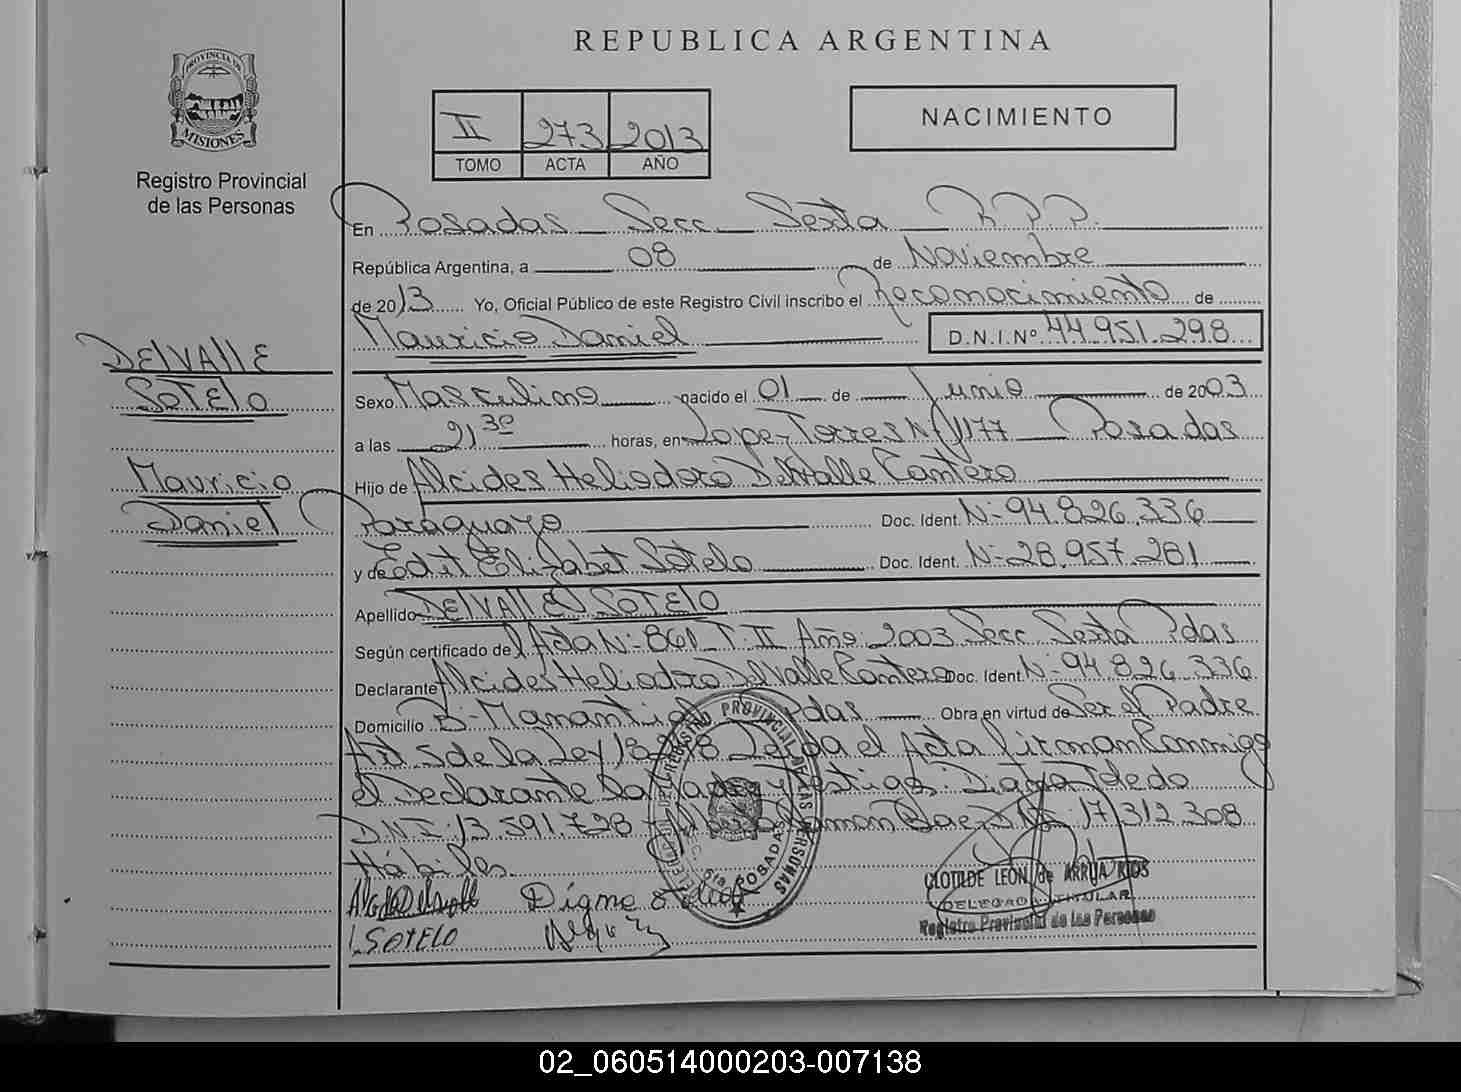 REPUBLICA ARGENTINA
PROVINCIA DE MISIONES
Registro Provincial
de las Personas
II 273 2013
TOMO ACTA AÑO
NACIMIENTO
En Posadas Secc. Sexta R.P.P.
República Argentina, a 08 de Noviembre
de 2013 Yo, Oficial Público de este Registro Civil inscribo el Reconocimiento de
Mauricio Daniel D.N.I.Nº 44.951.298
DElVAllE
SoTElo
Mauricio
Daniel
Sexo Masculino nacido el 01 de Junio de 2003
a las 21 30 horas, en Lopez Torres Nº 1177 Posadas
Hijo de Alcides Heliodoro Delvalle Cantero
Paraguayo Doc. Ident. Nº 94.826.336
y de Edit Elizabet Sotelo Doc. Ident. Nº 28.957.281
Apellido DElVAllE SoTElo
Según certificado del Acta Nº 861 T: II Año: 2003 Secc. Sexta Pdas
Declarante Alcides Heliodoro Delvalle Cantero Doc. Ident. Nº 94.826.336
Domicilio Bº Manantial Pdas Obra en virtud de Ser el Padre
Art. 5 de la Ley 18248 Leída el Acta firman Conmigo
el Declarante la Madre y testigos: Digna Toledo
DNI: 13.591.728 Ramon Baez DNI: 17.312.308
Hábiles.
SOTELO
CLOTILDE LEON de ARRUA RIOS
DELEGADA TITULAR
Registro Provincial de las Personas
REGISTRO PROVINCIAL DE LAS PERSONAS
POSADAS
02_060514000203-007138